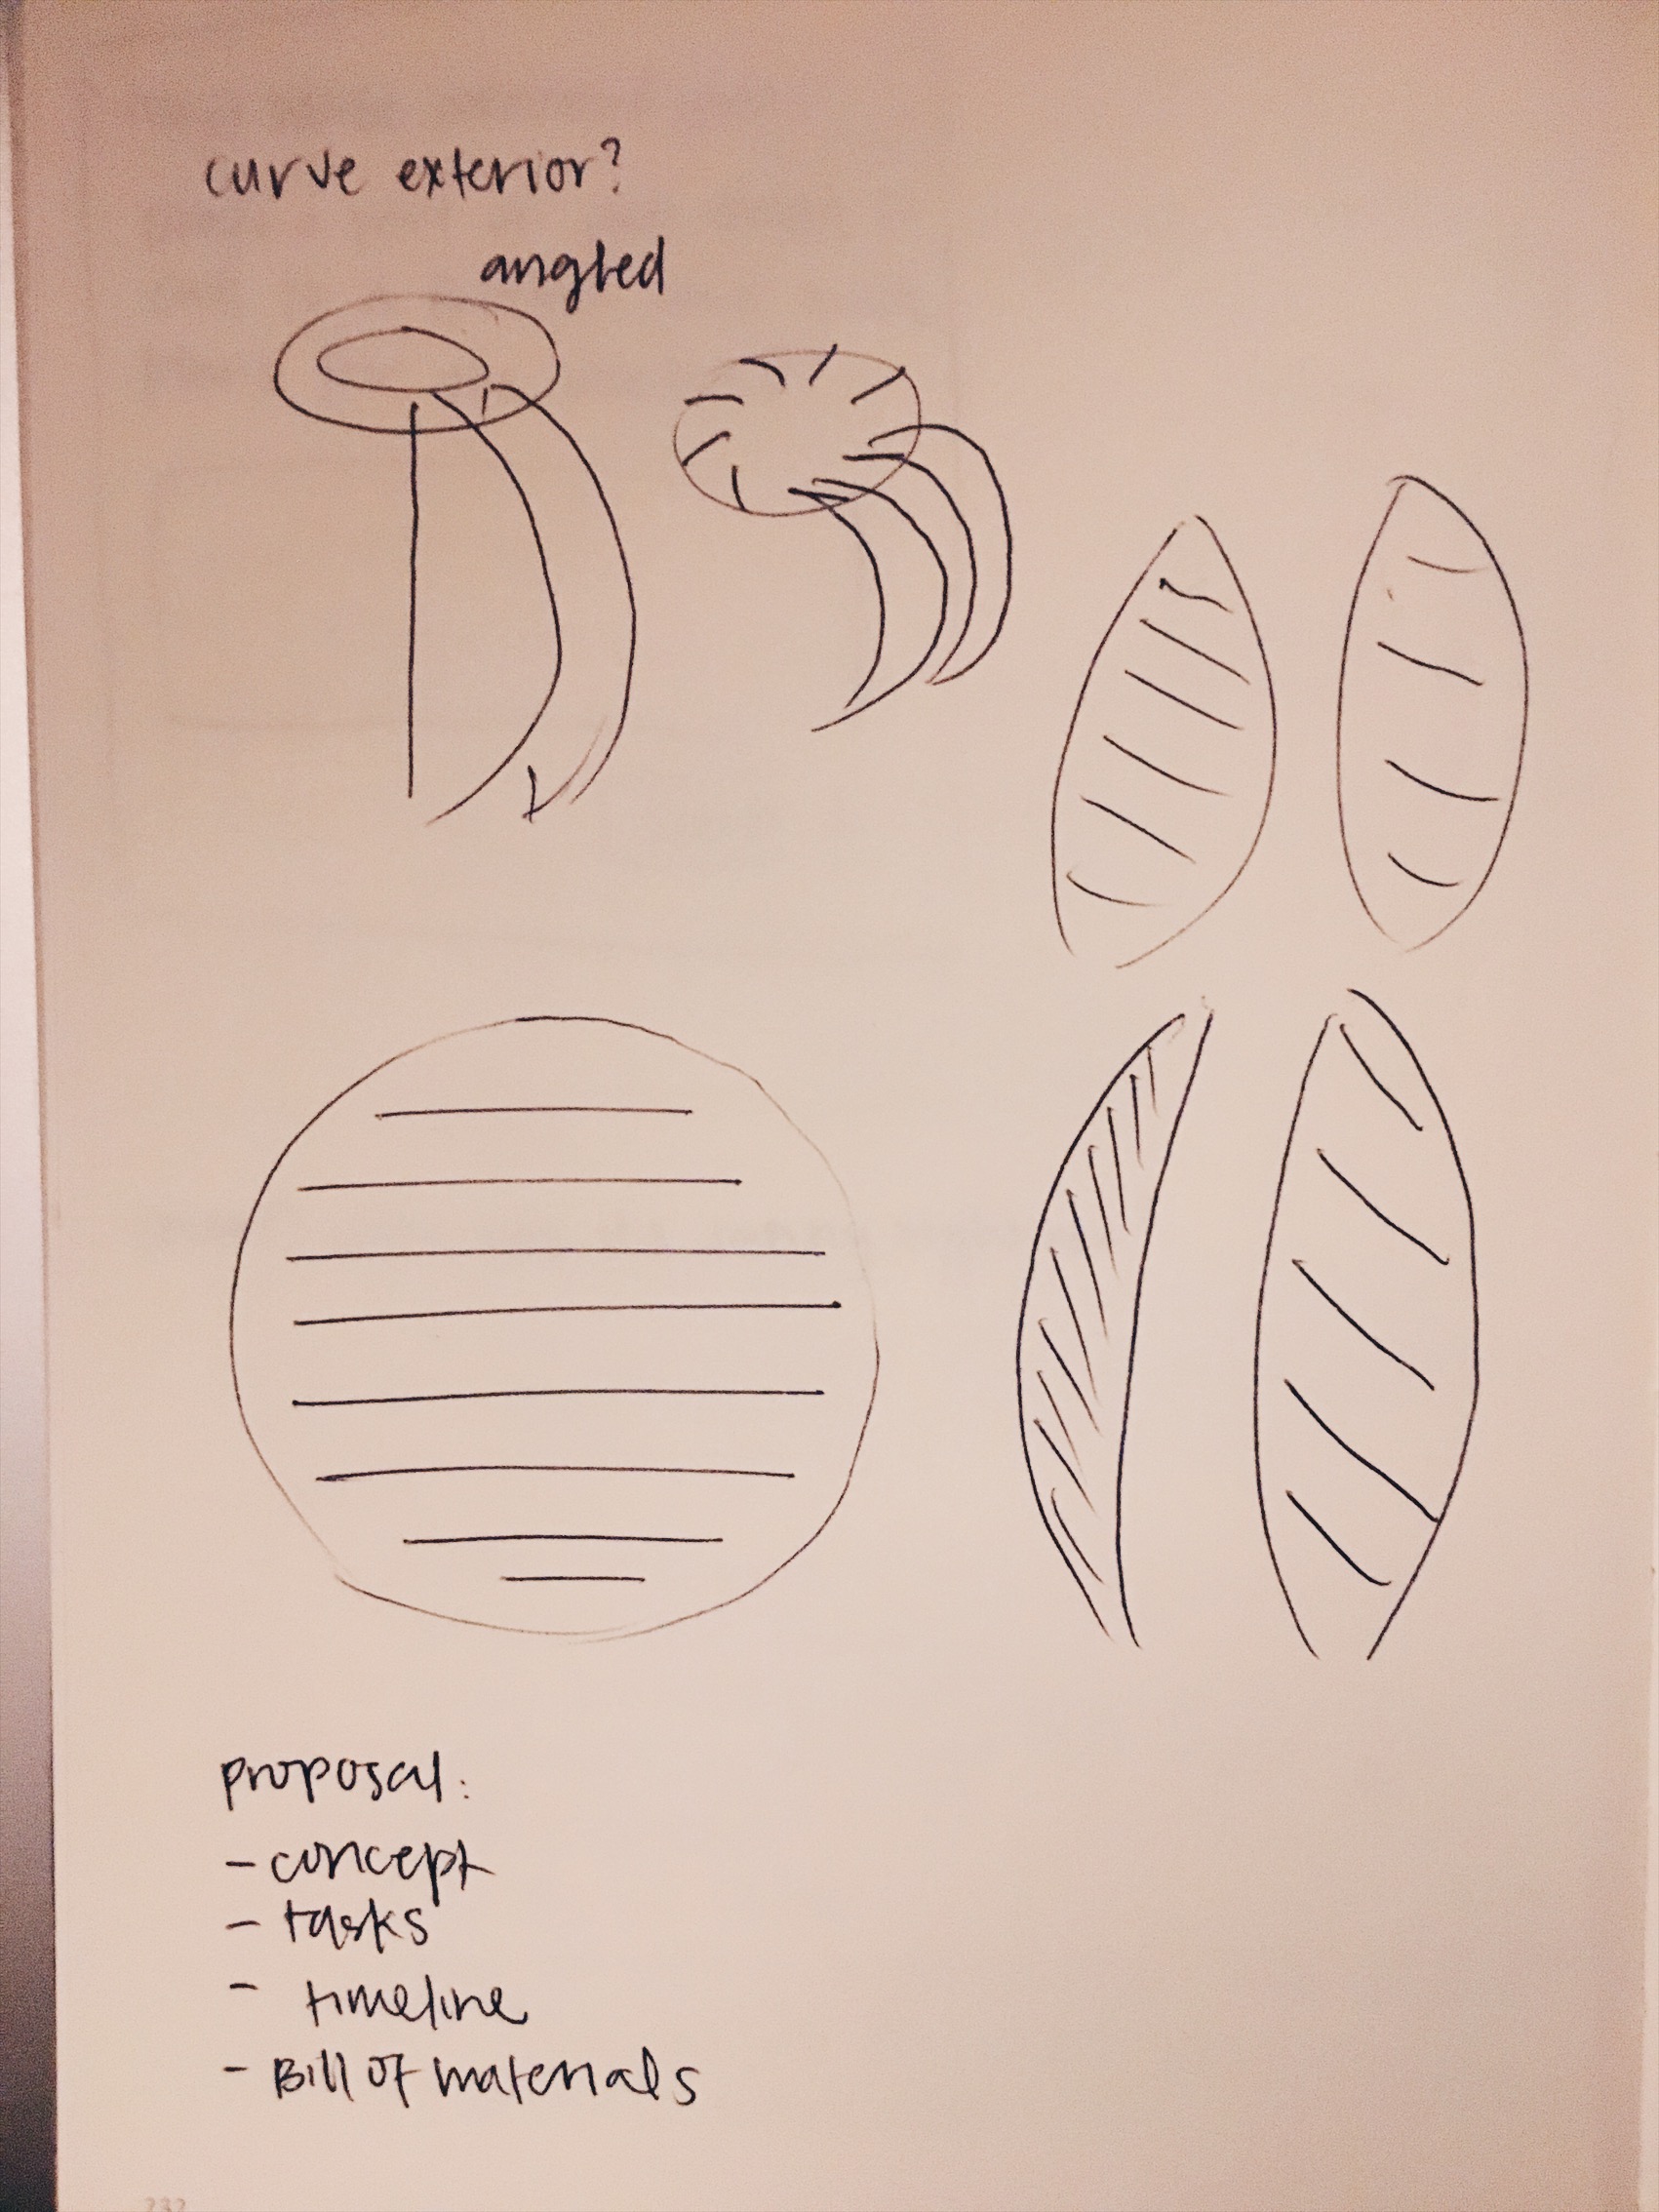 curve exterior?
angled
proposal:
- concept
- tasks
- timeline
- Bill of materials
232